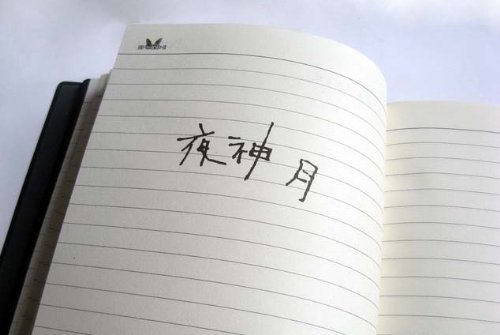 夜神月